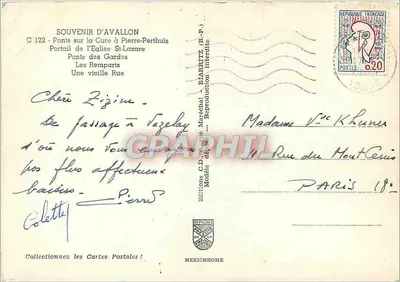 SOUVENIR D'AVALLON
C 122 - Ponts sur la Cure à Pierre-Perthuis
Portail de l'Eglise St-Lazare
Ponts des Gardes
Les Remparts
Une vieille Rue
Chère Zizine -
De passage à Vézelay
d'où nous vous envoyons
nos plus affectueux
baisers - Pierre
Colette
Collectionnez les Cartes Postales !
Editions C.D. Maréchal - BIARRITZ (B.-P.)
Reproduction Interdite
MEXICHROME
REPUBLIQUE FRANÇAISE
POSTES
0,20
Madame Vve
41 Rue du Mont Cenis
PARIS 18e
CPAPHIL